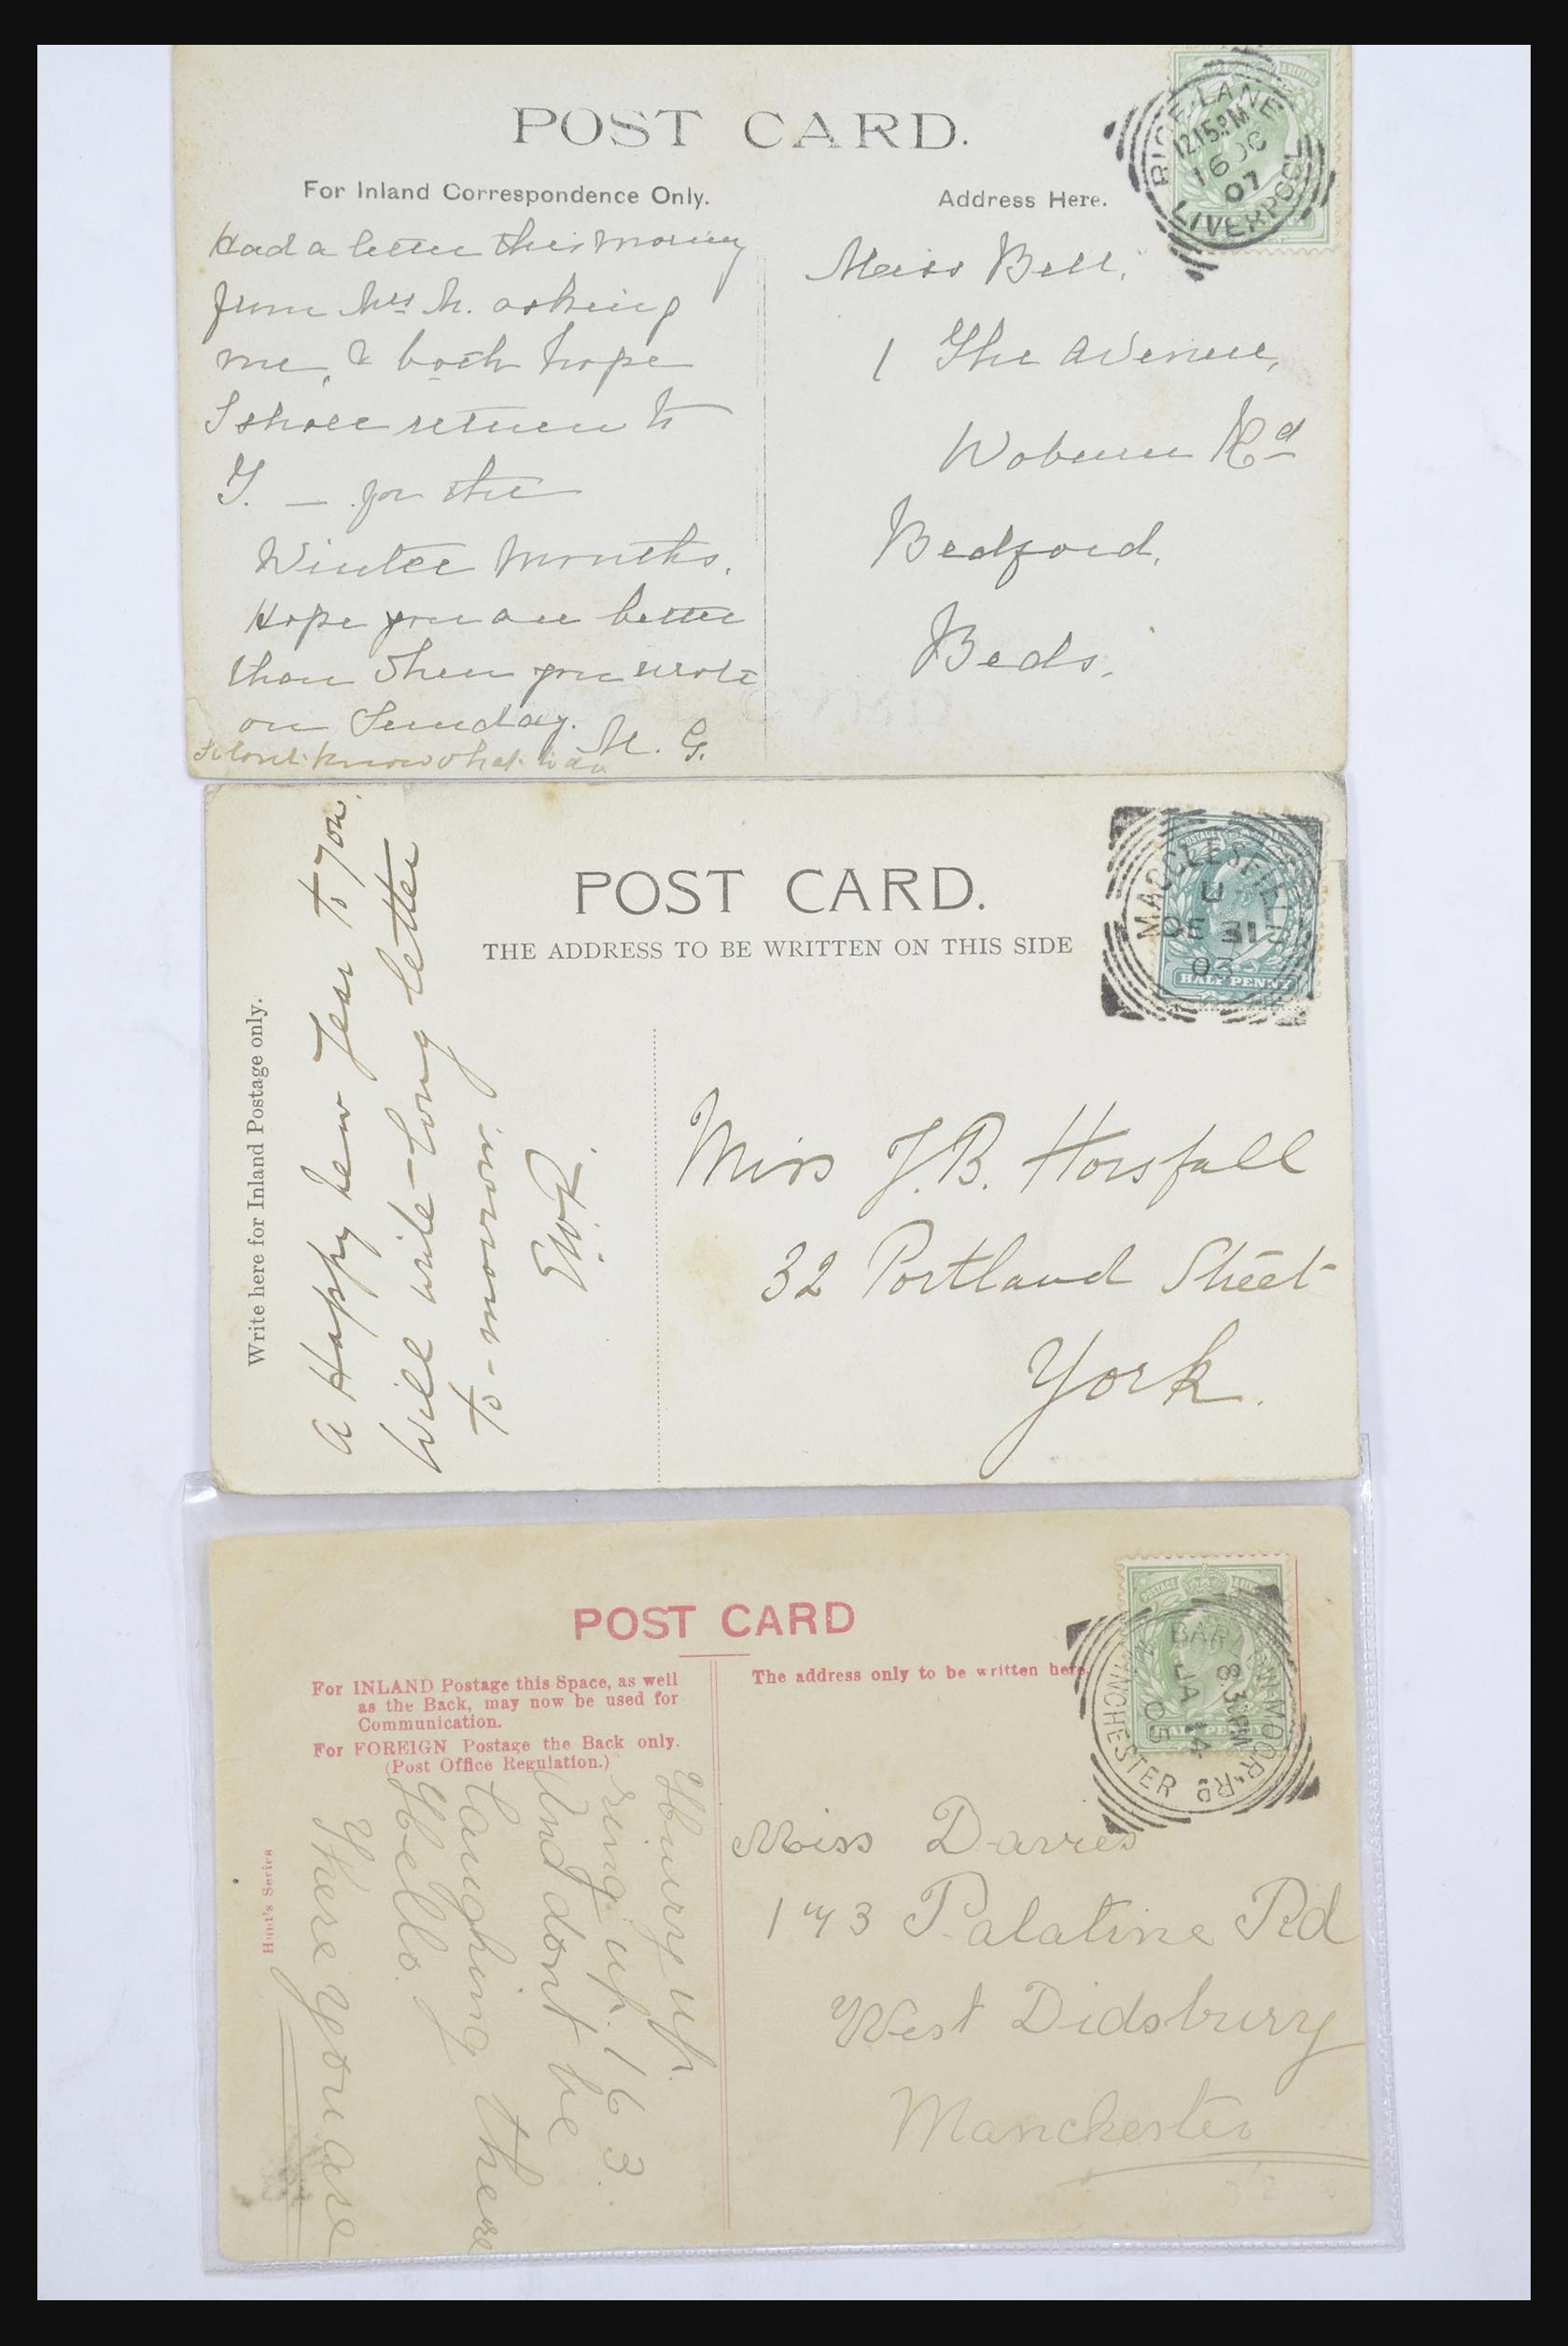 POST CARD.
For Inland Correspondence Only.
Address Here.
RICE LANE
12.15 PM
16 OC
07
LIVERPOOL
Had a letter this morning
from Mrs M. asking
me, & both hope
I shall return to
G. — for the
Winter Months.
Hope you are better
than when you wrote
on Sunday. M. G.
I dont know what to do
Miss Bell,
1 The Avenue,
Woburn Rd
Bedford,
Beds.
POST CARD.
THE ADDRESS TO BE WRITTEN ON THIS SIDE
MACCLESFIELD
DE 31
03
HALF PENNY
Write here for Inland Postage only.
A Happy New Year to you.
Will write long letter
to-morrow.
E.W.R.
Miss J.B. Horsfall
32 Portland Street
York.
POST CARD
For INLAND Postage this Space, as well
as the Back, may now be used for
Communication.
For FOREIGN Postage the Back only.
(Post Office Regulation.)
The address only to be written here.
MOOR RD
MANCHESTER
JA 14
05
Hurry up.
ring up. 163.
And dont be
laughing there
Hello.
There you are
Miss Davies
143 Palatine Rd
West Didsbury
Manchester